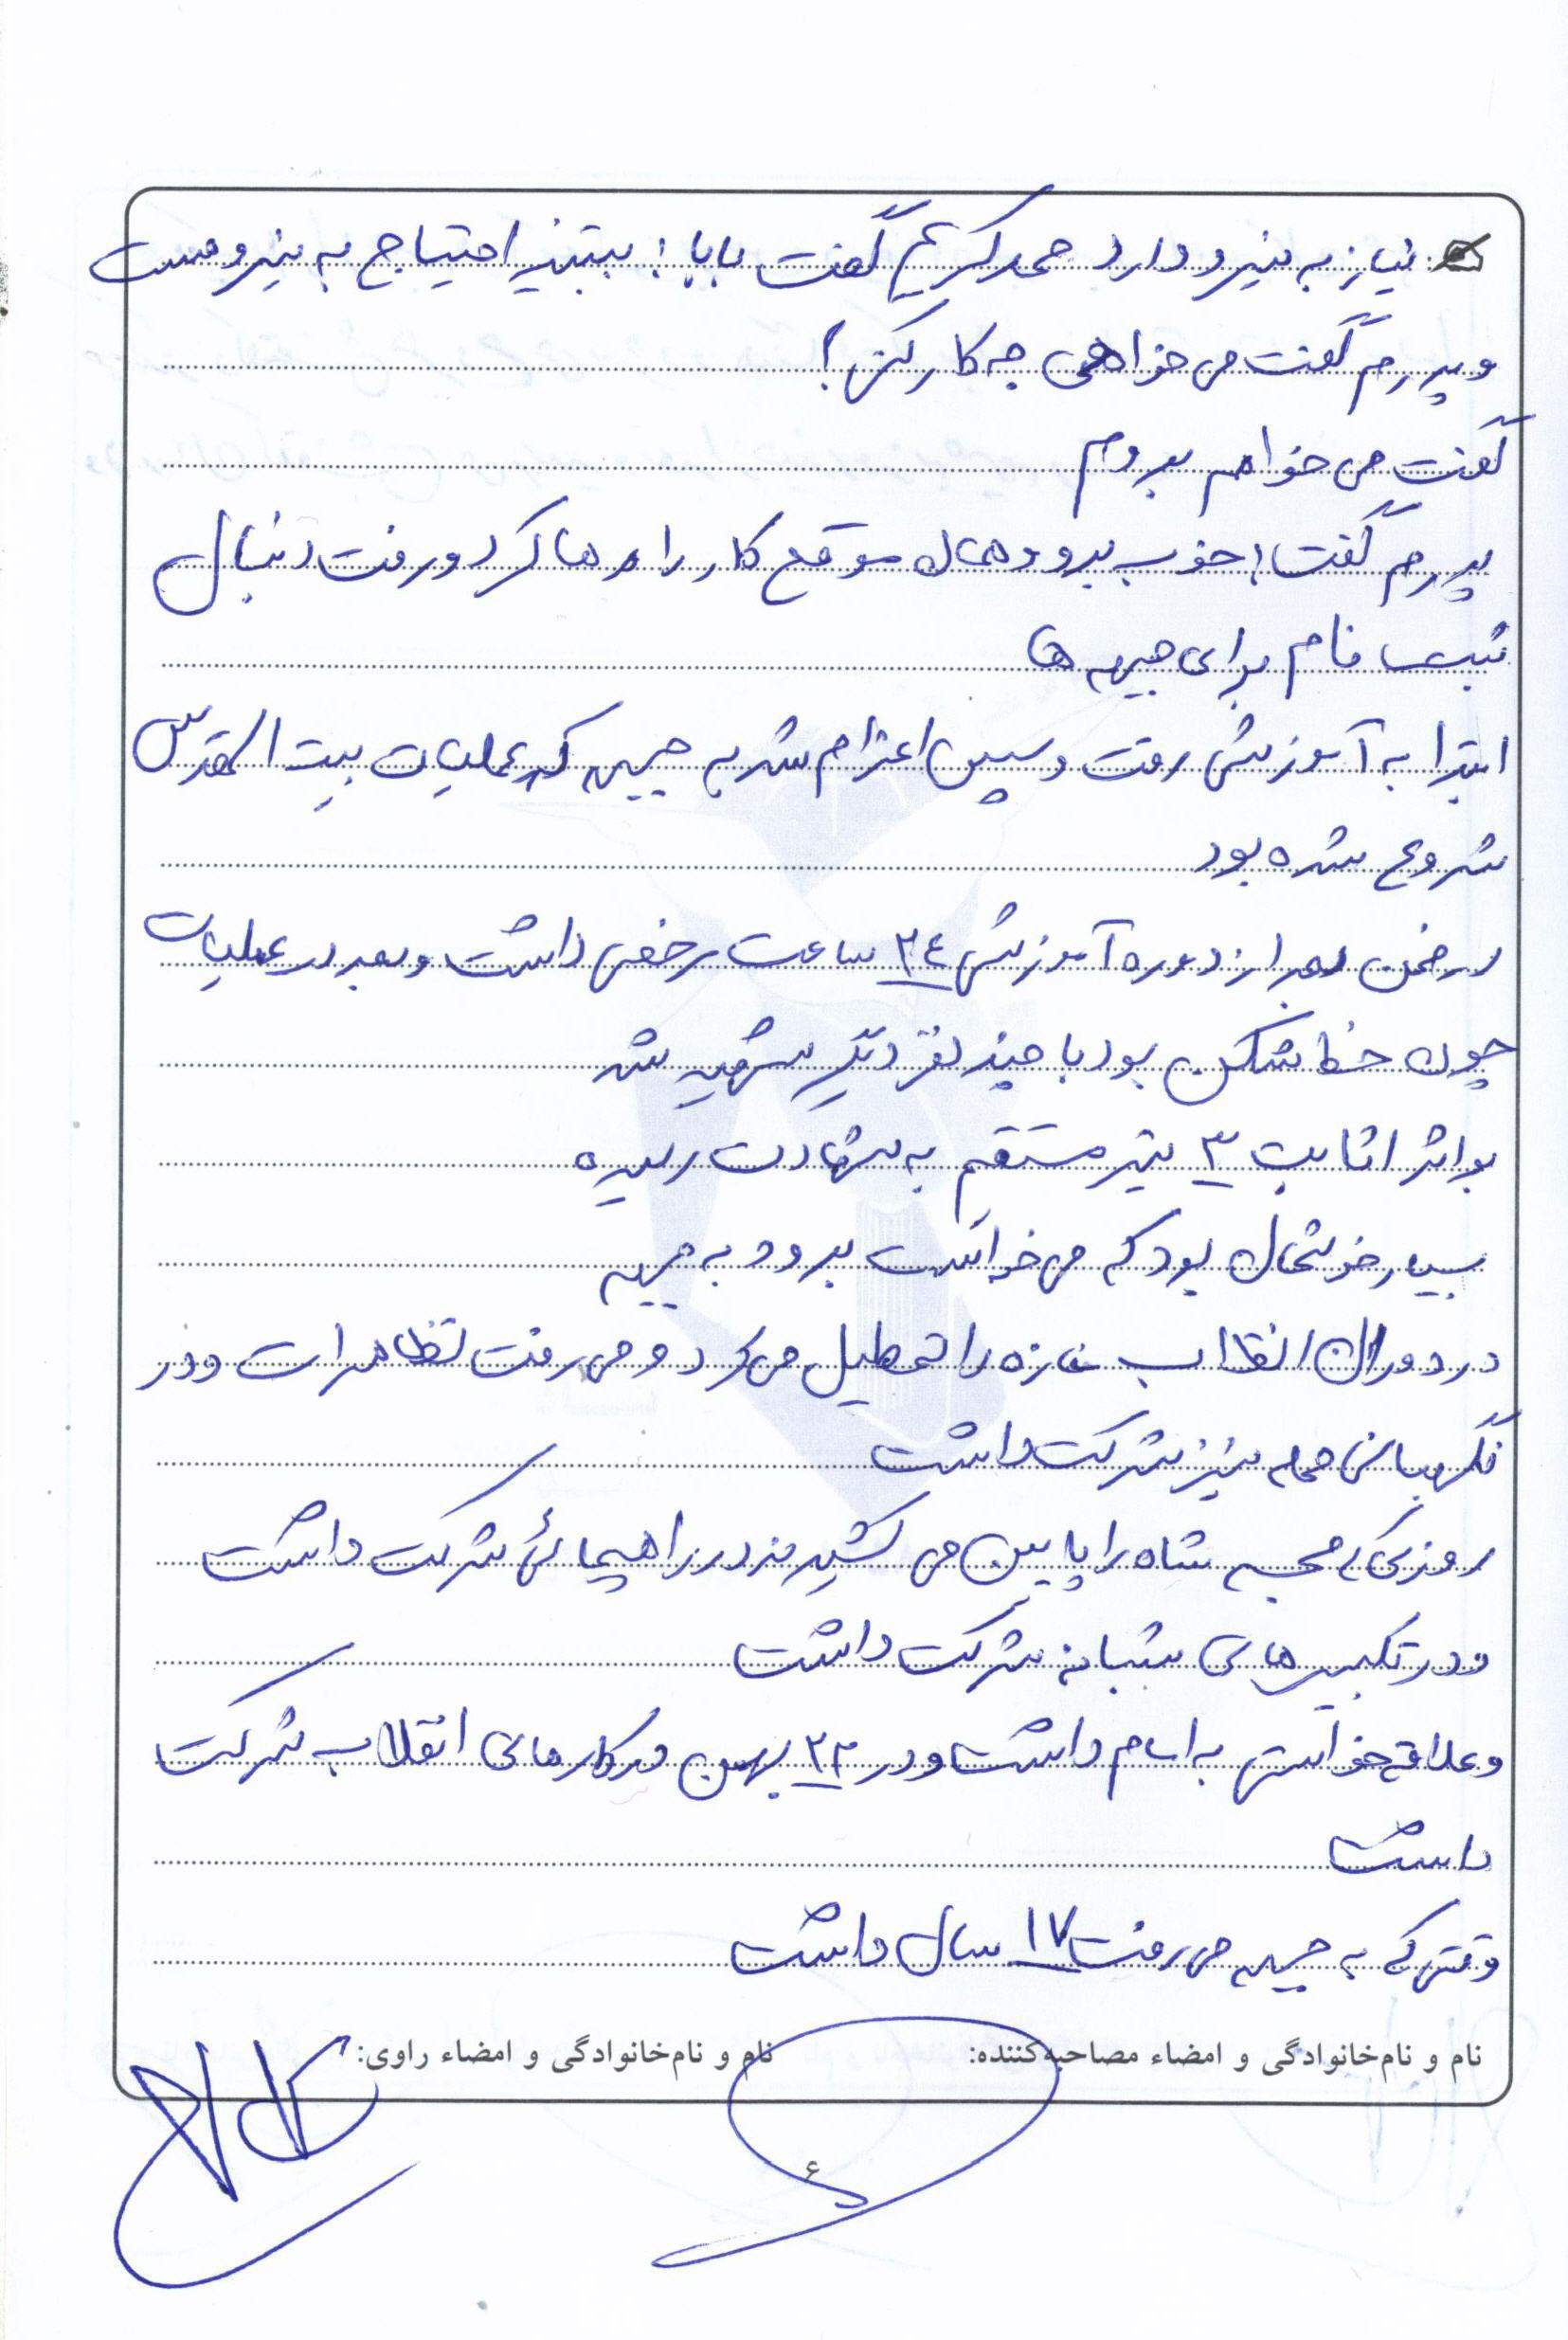 نیاز به نیرو دارد محمد کریم گفت بابا: ببینید احتیاج به نیرو هست
و پدرم گفت می خواهی چه کار کنی!
گفت می خواهم بروم
پدرم گفت: خوب برو و همان موقع کار را رها کرد و رفت دنبال
ثبت نام برای جبهه ها
ابتدا به آموزشی رفت و سپس اعزام شد به جبهه که عملیات بیت المقدس
شروع شده بود
در ضمن بعد از دوره آموزشی ۲۴ ساعت مرخصی داشت و بعد در عملیات
چون خط شکن بود با چند نفر دیگر شهید شد
بر اثر اثابت ۳ تیر مستقیم به شهادت رسیده
بسیار خوشحال بود که می خواست برود به جبهه
در دوران انقلاب مغازه را تعطیل می کرد و می رفت تظاهرات و در
نگهبانی محله نیز شرکت داشت
روزی که مجسمه شاه را پایین می کشیدند در راهپیمائی شرکت داشت
و در تکبیرهای شبانه شرکت داشت
و علاقه خواستی به امام داشت و در ۲۲ بهمن در کارهای انقلاب شرکت
داشت
وقتی که به جبهه می رفت ۱۷ سال داشت
نام و نام‌خانوادگی و امضاء مصاحبه‌کننده: نام و نام‌خانوادگی و امضاء راوی:
۶